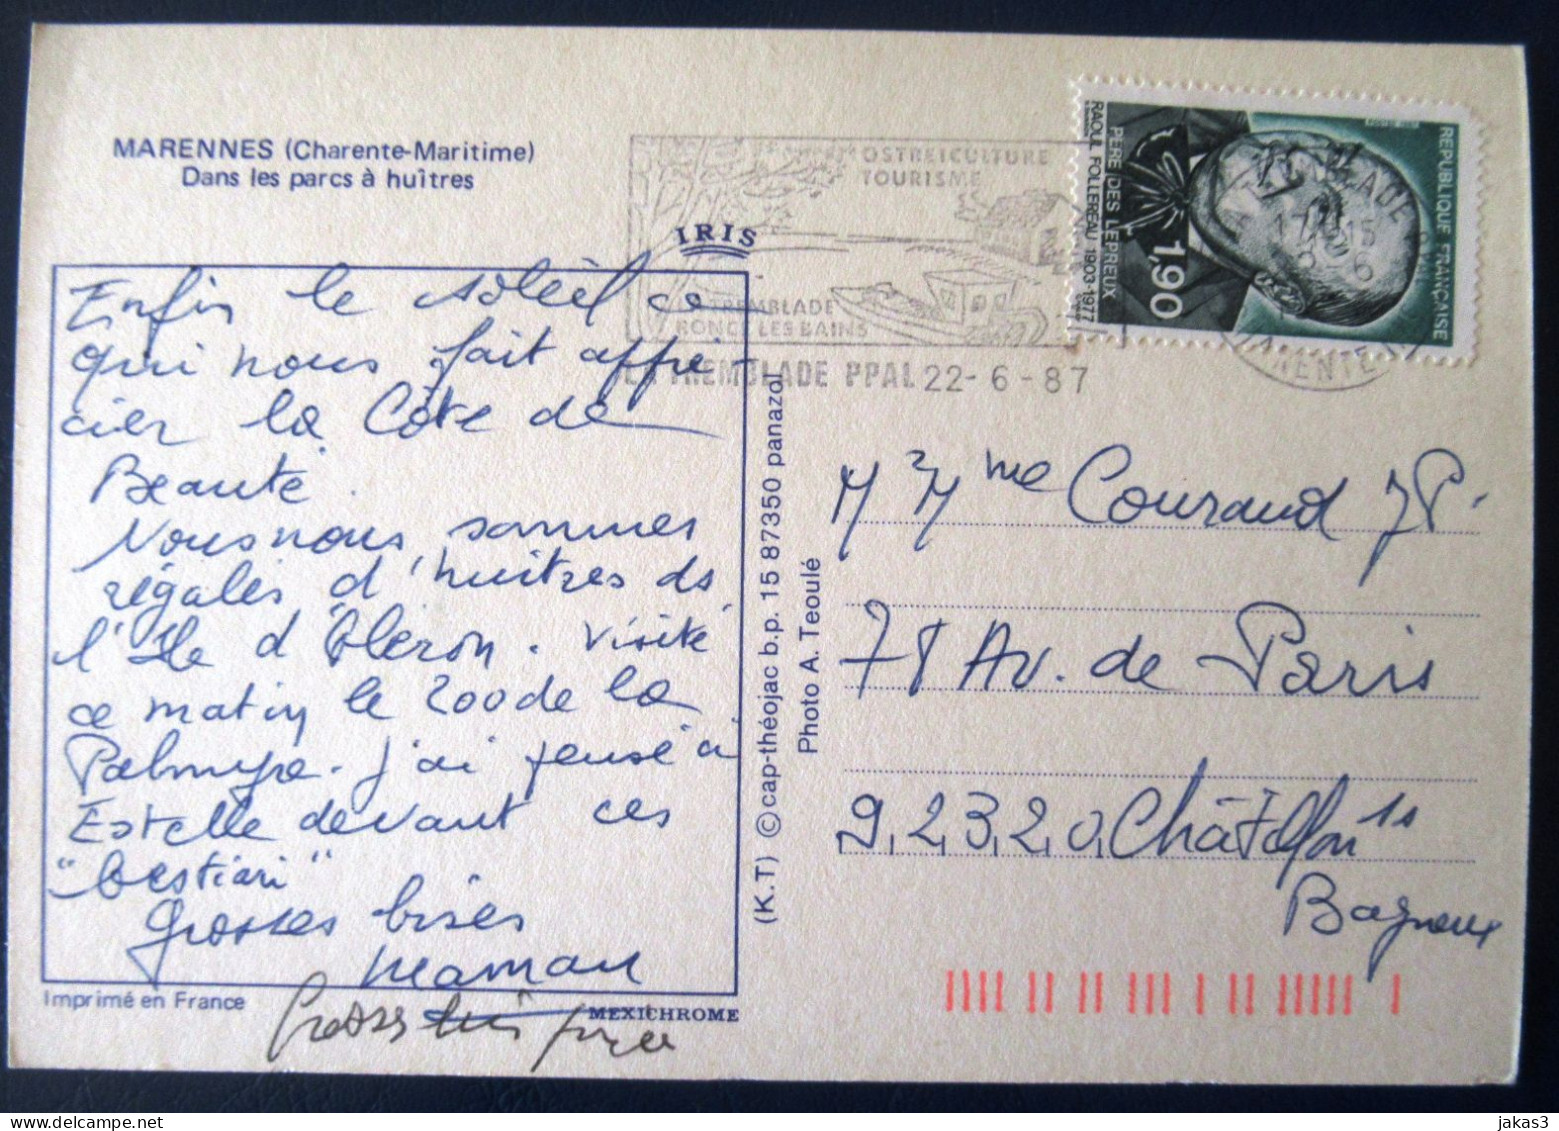 MARENNES (Charente-Maritime)
Dans les parcs à huîtres
IRIS
Enfin le soleil ce
qui nous fait appré-
cier la Côte de
Beauté.
Nous nous sommes
régalés d'huîtres ds
l'Ile d'Oleron. Visité
ce matin le zoo de la
Palmyre. J'ai pensé à
Estelle devant ces
"bestiari"
Grosses bises
Maman
Grosses bises
Imprimé en France
MEXICHROME
(K.T) © cap-théojac b.p. 15 87350 panazol
Photo A. Teoulé
OSTREICULTURE
TOURISME
LA TREMBLADE
RONCE LES BAINS
LA TREMBLADE PPAL 22-6-87
REPUBLIQUE FRANÇAISE
1,90
PERE DES LEPREUX
RAOUL FOLLEREAU 1903-1977
M Mme Couraud JP.
78 Av. de Paris
92320 Châtillon s
Bagneux
jakas3